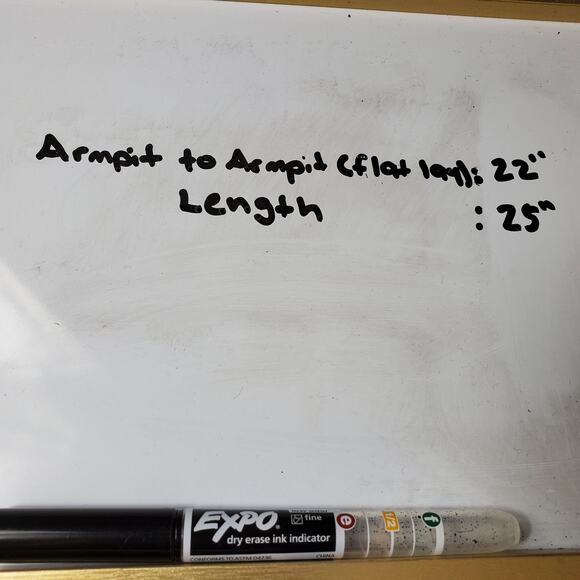 Armpit to Armpit (flat lay): 22"
Length : 25"
EXPO
fine
dry erase ink indicator
CONFORMS TO ASTM D4236 CHINA
e
1/2
f